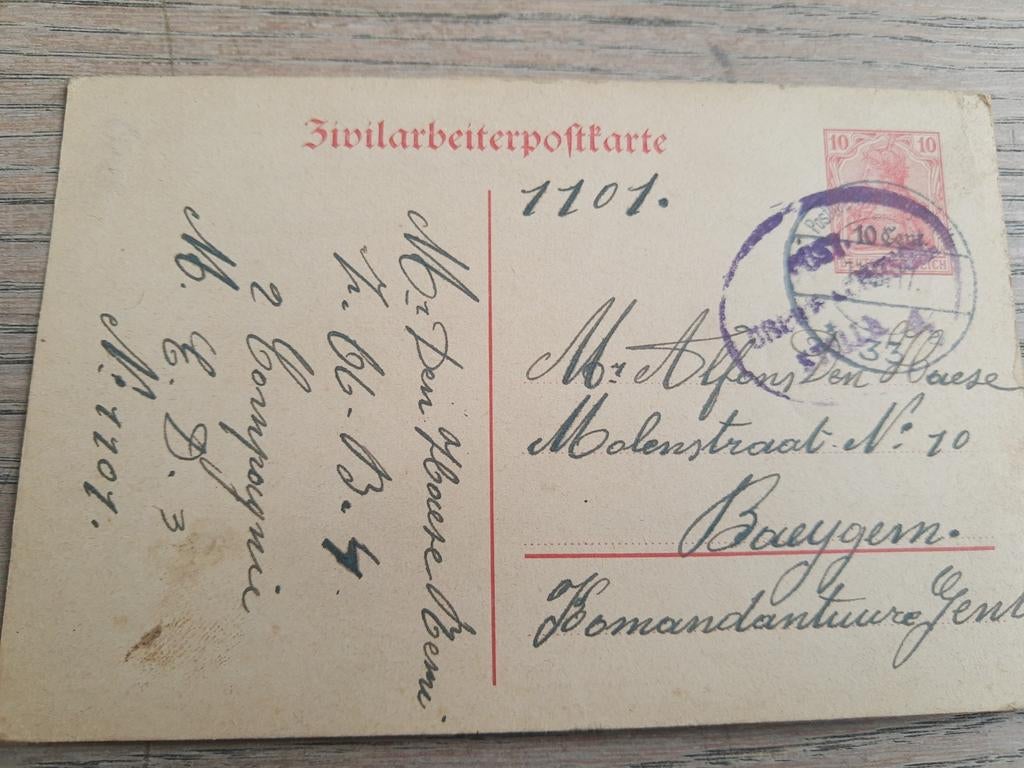 Zivilarbeiterpostkarte
10 10
10 Cent.
1101.
Mr Alfons Den Haese
Molenstraat No 10
Baeygem.
Komandantuure Gent
Mr Den Haese Remi
Z. A. B. 4.
2 Compagnie
M. E. D. 3
No. 1101.
POST.
33